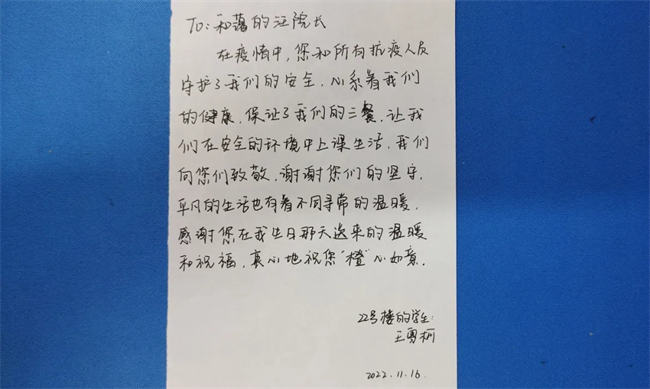 To: 和蔼的汪院长
在疫情中,您和所有抗疫人员
守护了我们的安全,心系着我们
的健康,保证了我们的三餐,让我
们在安全的环境中上课生活,我们
向您们致敬,谢谢您们的坚守,
平凡的生活也有着不同寻常的温暖,
感谢您在我生日那天送来的温暖
和祝福,真心地祝您“橙”心如意.
22号楼的学生:
王
2022.11.16